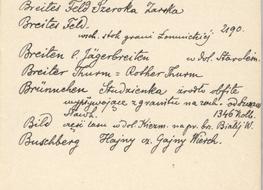 Breites Feld Szeroka Zarska
Breites Feld.
wsch. stok grani Lomnickiej. 2190.
Breiten l. Jägerbreiten w dol. Staroleśn.
Breiter Thurm = Rother Thurm
Brünnchen Studzienka źródło obfite
wypływające z granitu na zach. od
Sławk. 1346 Kolb.
Bild część lasu w dol. Kiezm. napr. br. Białej W.
Buschberg Hajny cz. Gajny Wierch.